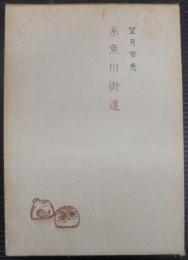 望月市恵
糸魚川街道